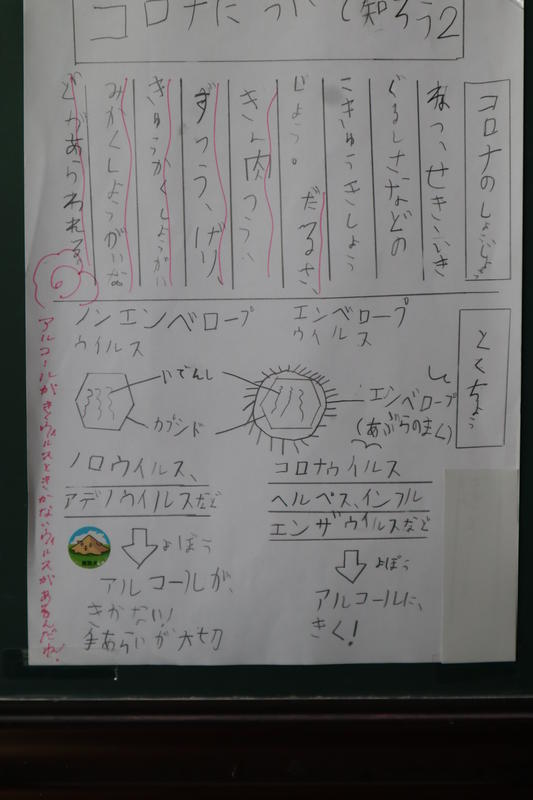 コロナについて知ろう2
コロナのしょうじょう
ねつ、せき、いき
ぐるしさなどの
こきゅうきしょう
じょう。だるさ、
きん肉つう、
ずつう、げり、
きゅうかくしょうがい
みかくしょうがいな
どがあらわれる。
アルコールがきくウィルスときかないウィルスがあるんだね!
とくちょう
エンベロープ
ウイルス
ノンエンベロープ
ウイルス
いでんし
カプシド
エンベロープ
(あぶらのまく)
コロナウイルス
ヘルペス、インフル
エンザウイルスなど
よぼう
アルコールに、
きく!
ノロウイルス、
アデノウイルスなど
よぼう
アルコールが、
きかない!
手あらいが大切